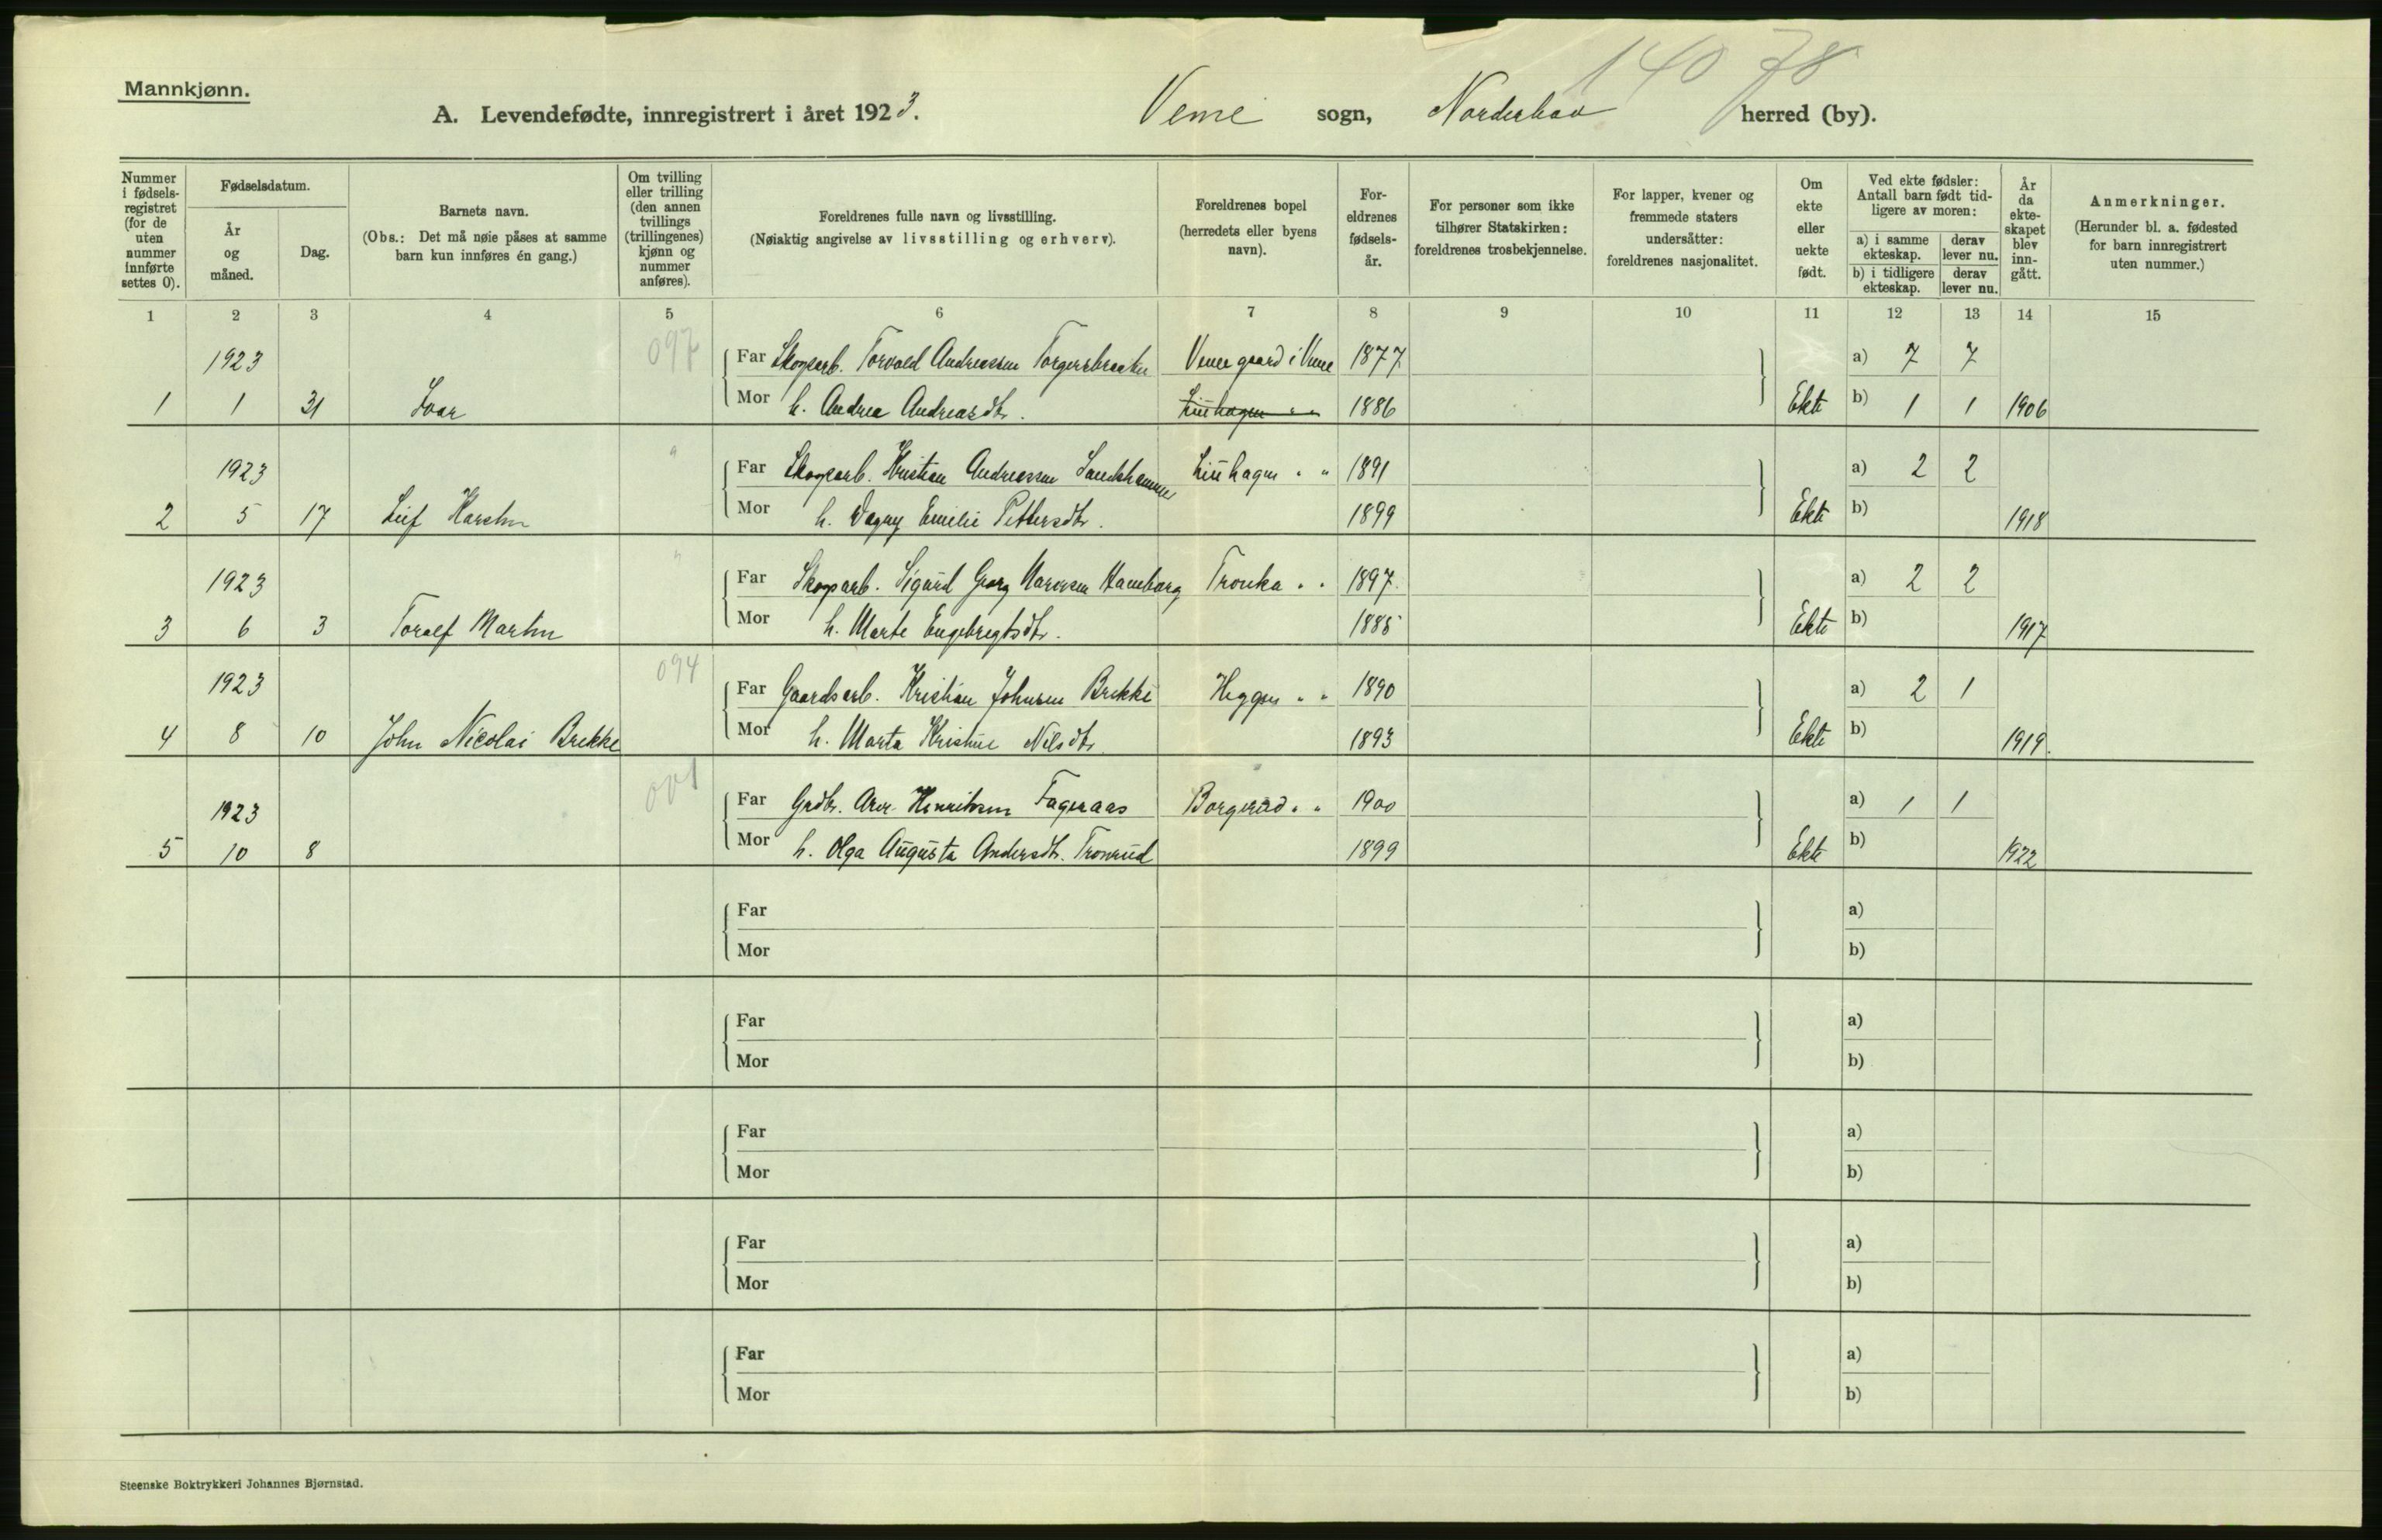 140 78
Mannkjønn.
A. Levendefødte, innregistrert i året 1923. Veme sogn, Norderhov herred (by).
Nummer i fødsels-registret (for de uten nummer innførte settes 0).
Fødselsdatum.
År og måned.
Dag.
Barnets navn.
(Obs.: Det må nøie påses at samme barn kun innføres én gang.)
Om tvilling eller trilling (den annen tvillings (trillingenes) kjønn og nummer anføres).
Foreldrenes fulle navn og livsstilling.
(Nøiaktig angivelse av livsstilling og erhverv).
Foreldrenes bopel (herredets eller byens navn).
For-eldrenes fødsels-år.
For personer som ikke tilhører Statskirken: foreldrenes trosbekjennelse.
For lapper, kvener og fremmede staters undersåtter: foreldrenes nasjonalitet.
Om ekte eller uekte født.
Ved ekte fødsler: Antall barn født tid-ligere av moren:
a) i samme ekteskap. derav lever nu.
b) i tidligere ekteskap. derav lever nu.
År da ekte-skapet blev inn-gått.
Anmerkninger.
(Herunder bl. a. fødested for barn innregistrert uten nummer.)
1 2 3 4 5 6 7 8 9 10 11 12 13 14 15
1923 097 Far Skogsarb. Torvald Andreassen Torgersbraaten Veme gaard i Veme 1877 a) 7 7
1 1 31 Ivar Mor h. Andrea Andreasdtr. Linhagen " " 1886 Ekte b) 1 1 1906
1923 " Far Skogsarb. Kristian Andreassen Sandshammer Linhagen " " 1891 a) 2 2
2 5 17 Leif Karsten Mor h. Dagny Emilie Pettersdtr. 1899 Ekte b) 1918
1923 " Far Skogsarb. Sigurd Georg Hamborg Tronka " " 1897 a) 2 2
3 6 3 Toralf Martin Mor h. Marte Engebregtsdtr. 1885 Ekte b) 1917
1923 094 Far Gaardsarb. Kristian Johnsen Brekke Heggen " " 1890 a) 2 1
4 8 10 John Nicolai Brekke Mor h. Marta Kristine Nilsdtr. 1893 Ekte b) 1919.
1923 001 Far Grdbr. Arve Henriksen Fageraas Borgerud " " 1900 a) 1 1
5 10 8 Mor h. Olga Augusta Andersdtr. Tronrud 1899 Ekte b) 1922
Far a)
Mor b)
Far a)
Mor b)
Far a)
Mor b)
Far a)
Mor b)
Far a)
Mor b)
Steenske Boktrykkeri Johannes Bjørnstad.